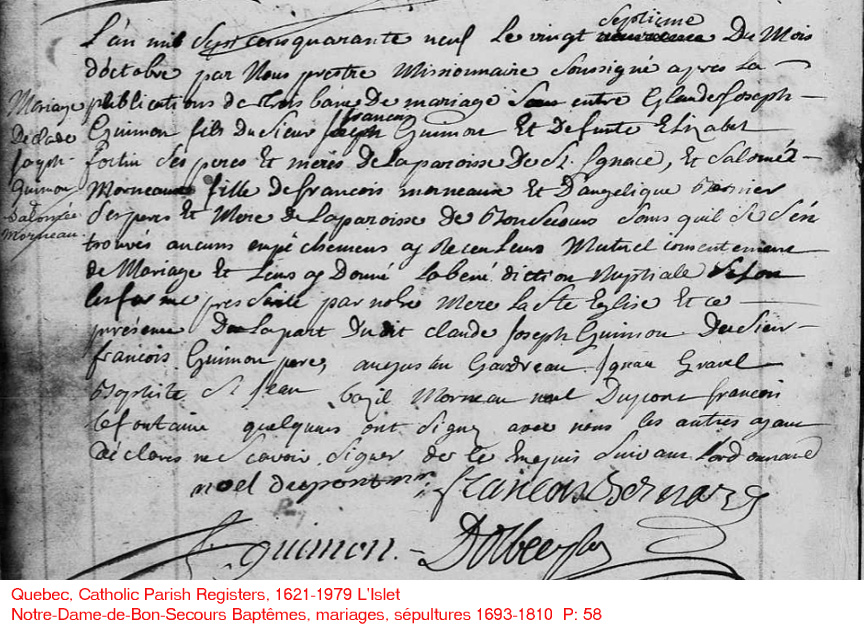 L'an mil Sept cens quarante neuf Le vingt septiéme Du Mois
d'octobre par Nous prestre Missionnaire soussigné apres La
publications de trois bans De mariage entre Glaude Joseph
Guimon fils du sieur francois Guimon Et Defunte Elizabet
fortin Ses peres Et meres De la paroisse De St. Ignace, Et Salomée
Morneau fille de francois morneaux Et D'angelique Bernier
Ses peres Et Mere de La paroisse De Bonsecours sans quil se soit
trouvés aucuns empéchemens ay Receu Leurs Mutuel consentement
de Mariage Et Leurs ay Donné La bené diction Nuptiale selon
la forme prescritte par notre Mere La Ste Eglise Et ce
présence De La part Du dit claude Joseph Guimon Du sieur
francois Guimon pere, augustin Ignace Gravel
Baptiste St Jean bazil Morneau noel Dupont francois
Lefontaine quelqunes ont Signez avec nous les autres ayant
déclarés ne Scavoir Signer de ce Enquis Suivant L'ordonnance
noel dupont francois Bernard
guimon Dolbec ptr
Mariage
De Clade
Joseph
Guimon
Salomée
Morneau
Quebec, Catholic Parish Registers, 1621-1979 L'Islet
Notre-Dame-de-Bon-Secours Baptêmes, mariages, sépultures 1693-1810 P: 58